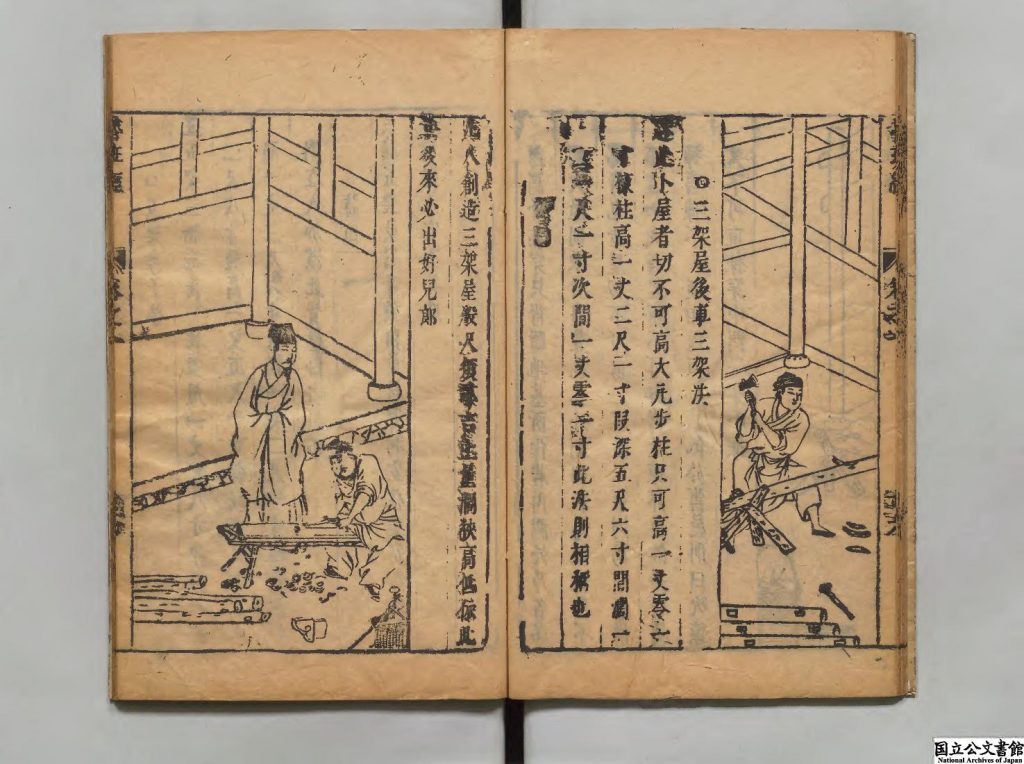 三架屋後車三架法
造此小屋者切不可高大凢步柱只可高一丈零一
寸棟柱高一丈二尺一寸叚深五尺六寸間濶一
丈一尺一寸次間一丈零一寸此法則相稱也
凢人創造三架屋般尺須吉上量濶狹高低依此
後來必出好兒郎
魯班經
国立公文書館
National Archives of Japan